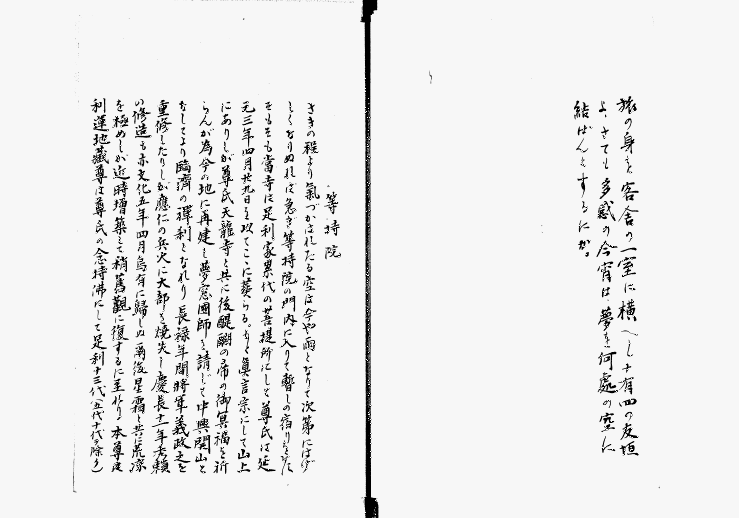 旅の身を客舎の一室に横へし十有四の友垣
よ、さても多感の今宵は、夢を何處の空に
結ばんとするにか。
等持院
さきの程より氣づかはれたる空は今や雨となりて次第にはげ
しくなりぬれば急ぎ等持院の門内に入りて暫しの宿りを
そもそも當寺は足利家累代の菩提所にして尊氏は延
元三年四月廿九日を以てここに葬らる。もと眞言宗にして山上
にありしが尊氏天龍寺と共に後醍醐の帝の御冥福を祈
らんが為今の地に再建し夢窓國師を請じて中興開山と
なしてより臨濟の禪刹となれり長祿年間將軍義政之を
重修したりしが應仁の兵火に大部を焼失し慶長十一年秀頼
の修造も亦文化五年四月烏有に歸しぬ爾後星霜と共に荒凉
を極めしが近時増築して稍舊觀に復するに至れり本尊
利運地藏尊は尊氏の念持佛にして足利十三代(五代十代を除く)